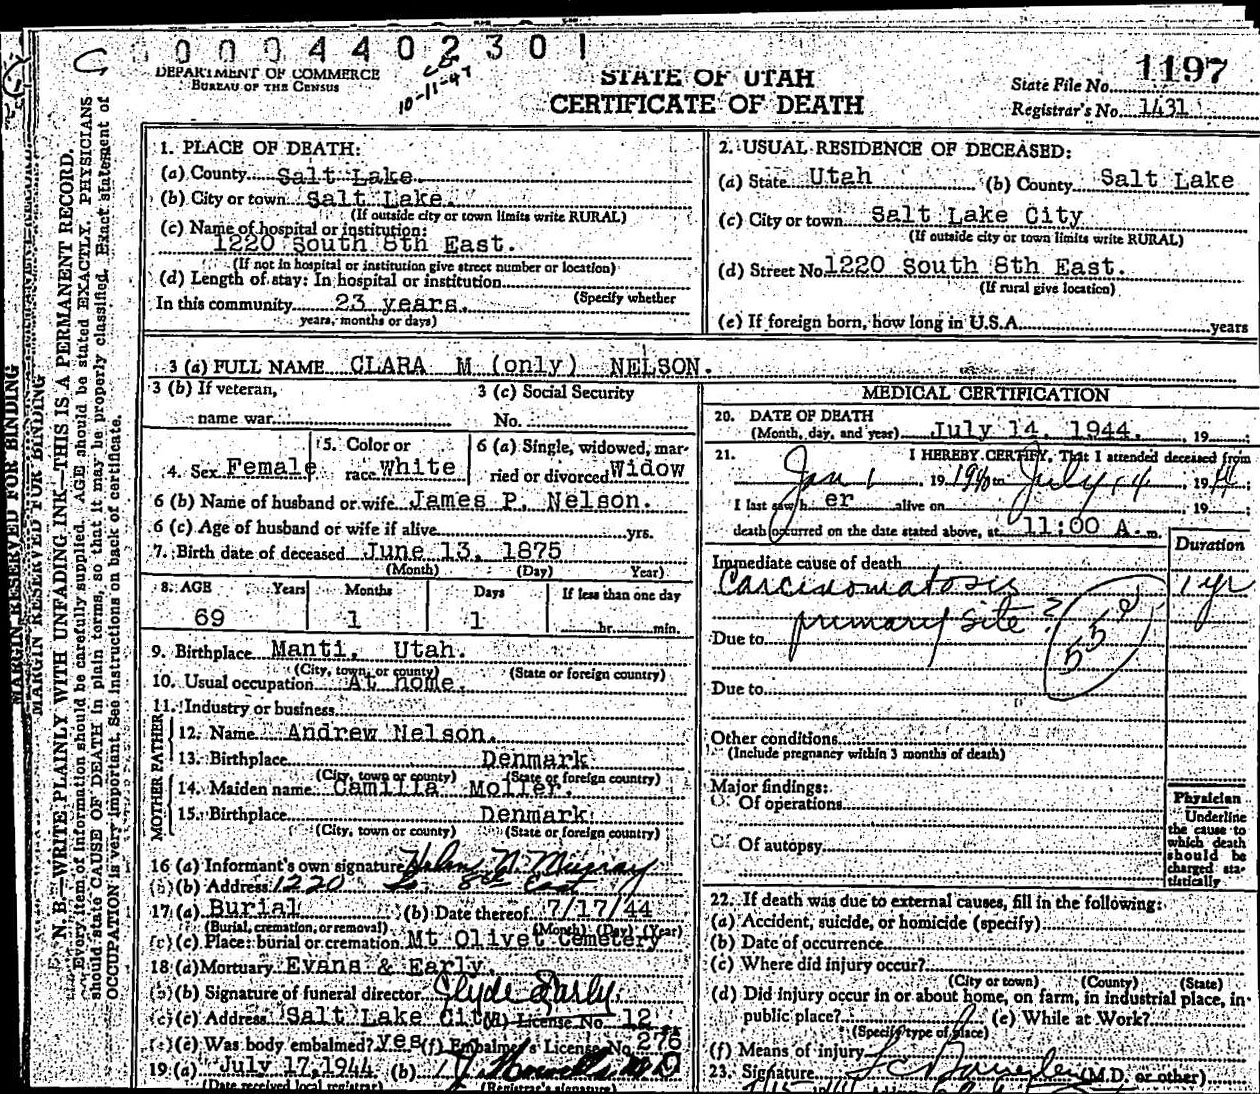 0 0 0 4 4 0 2 3 0 1
C
DEPARTMENT OF COMMERCE
BUREAU OF THE CENSUS
10-11-47
STATE OF UTAH
CERTIFICATE OF DEATH
State File No. 1197
Registrar's No. 1431
MARGIN RESERVED FOR BINDING
MARGIN RESERVED FOR BINDING
N. B.—WRITE PLAINLY WITH UNFADING INK—THIS IS A PERMANENT RECORD.
Every item of information should be carefully supplied. AGE should be stated EXACTLY. PHYSICIANS
should state CAUSE OF DEATH in plain terms, so that it may be properly classified. Exact statement of
OCCUPATION is very important. See instructions on back of certificate.
1. PLACE OF DEATH:
(a) County Salt Lake
(b) City or town Salt Lake.
(If outside city or town limits write RURAL)
(c) Name of hospital or institution:
1220 South 8th East.
(If not in hospital or institution give street number or location)
(d) Length of stay: In hospital or institution
(Specify whether
In this community 23 years.
years, months or days)
2. USUAL RESIDENCE OF DECEASED:
(a) State Utah (b) County Salt Lake
(c) City or town Salt Lake City
(If outside city or town limits write RURAL)
(d) Street No. 1220 South 8th East.
(If rural give location)
(e) If foreign born, how long in U.S.A. years
3 (a) FULL NAME CLARA M (only) NELSON.
3 (b) If veteran,
name war
3 (c) Social Security
No.
4. Sex Female
5. Color or
race White
6 (a) Single, widowed, mar-
ried or divorced Widow
6 (b) Name of husband or wife James P. Nelson.
6 (c) Age of husband or wife if alive yrs.
7. Birth date of deceased June 13, 1875
(Month) (Day) Year)
8. AGE Years Months Days If less than one day
69 1 1 hr. min.
9. Birthplace Manti, Utah.
(City, town, or county) (State or foreign country)
10. Usual occupation At home.
11. Industry or business
FATHER
12. Name Andrew Nelson.
13. Birthplace Denmark
(City, town or county) (State or foreign country)
MOTHER
14. Maiden name Camilla Moller.
15. Birthplace Denmark
(City, town or county) (State or foreign country)
16 (a) Informant's own signature Helen N. Murray
(b) (b) Address 1220 So. 8th East
17 (a) Burial (b) Date thereof 7/17/44
(Burial, cremation, or removal) (Month) (Day) (Year)
(c) (c) Place: burial or cremation Mt Olivet Cemetery
18 (a) Mortuary Evans & Early.
(b) (b) Signature of funeral director Clyde Early
(c) (c) Address Salt Lake City License No. 12
(e) (e) Was body embalmed? Yes (f) Embalmer's License No. 276
19 (a) July 17, 1944 (b) M.D
(Date received local registrar) (Registrar's signature)
MEDICAL CERTIFICATION
20. DATE OF DEATH
(Month, day, and year) July 14, 1944. , 19 ;
21. I HEREBY CERTIFY, That I attended deceased from
Jan 1 , 19 1940 to July 14 , 1944
I last saw h er alive on , 19 ;
death occurred on the date stated above, at 11:00 A. m.
Duration
Immediate cause of death
Carcinomatosis 1 yr
primary site ?
Due to
Due to
Other conditions
(Include pregnancy within 3 months of death)
Major findings:
Of operations
Of autopsy
Physician
Underline
the cause to
which death
should be
charged sta-
tistically
22. If death was due to external causes, fill in the following:
(a) Accident, suicide, or homicide (specify)
(b) Date of occurrence
(c) Where did injury occur?
(City or town) (County) (State)
(d) Did injury occur in or about home, on farm, in industrial place, in
public place? (e) While at Work?
(Specify type of place)
(f) Means of injury
23. Signature (M.D. or other)